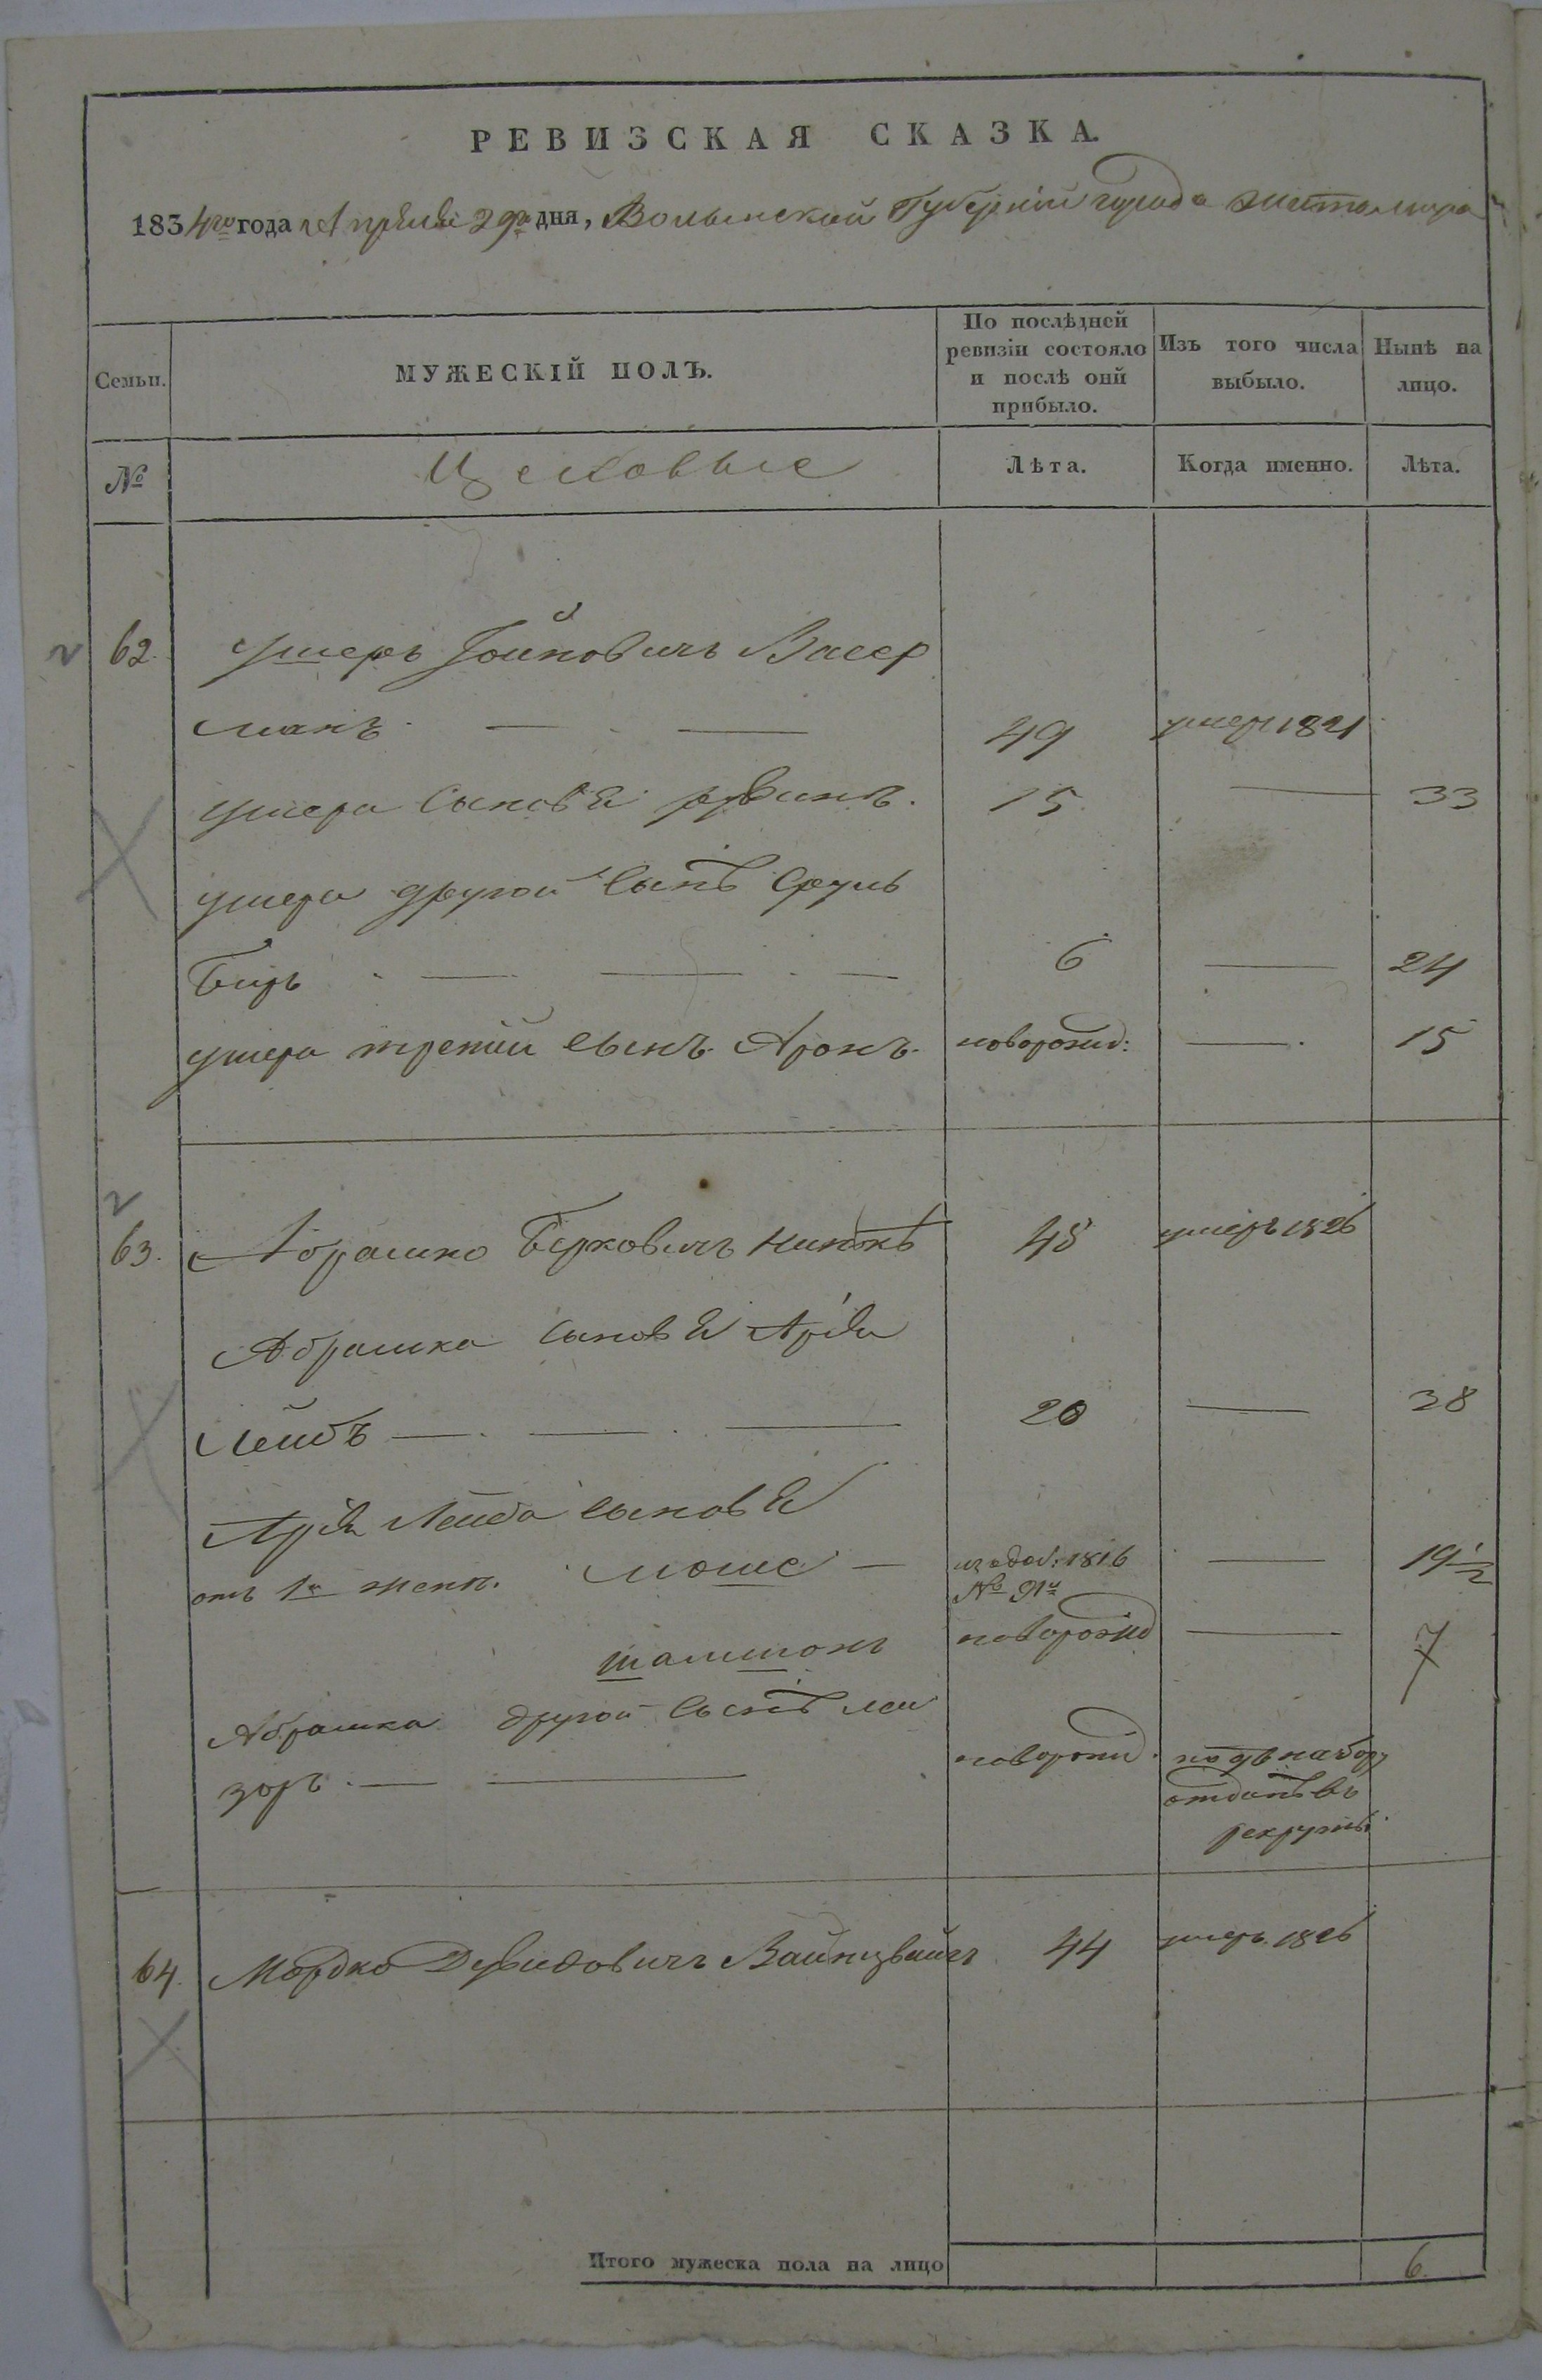 РЕВИЗСКАЯ СКАЗКА.
1834го года Апреля 29го дня, Волынской Губернии города Житомира
Семьи.
МУЖЕСКІЙ ПОЛЪ.
По послѣдней ревизіи состояло и послѣ онй прибыло.
Изъ того числа выбыло.
Нынѣ на лицо.
№
Цеховые
Лѣта.
Когда именно.
Лѣта.
62. Ушеръ Іойновичъ Васер
манъ. 49 умеръ 1821
Ушера сыновья Рувинъ. 15 33
Ушера другой сынъ Сруль
Беръ 6 24
Ушера третий сынъ Аронъ. новорожд: 15
63. Абрамко Берковичъ 48 умеръ 1826
Абрамка сыновья Арья
Лейбъ 20 38
Арья Лейба сыновья
отъ 1й жены. Моше 1816 19 1/2
№
Шамшонъ новорожд 7
Абрамка другой сынъ Лей
зоръ. новорожд. по набору
отданъ въ
рекруты.
64. Мордко Дувидовичъ Вайнцвайгъ 44 умеръ 1826
Итого мужеска пола на лицо 6.